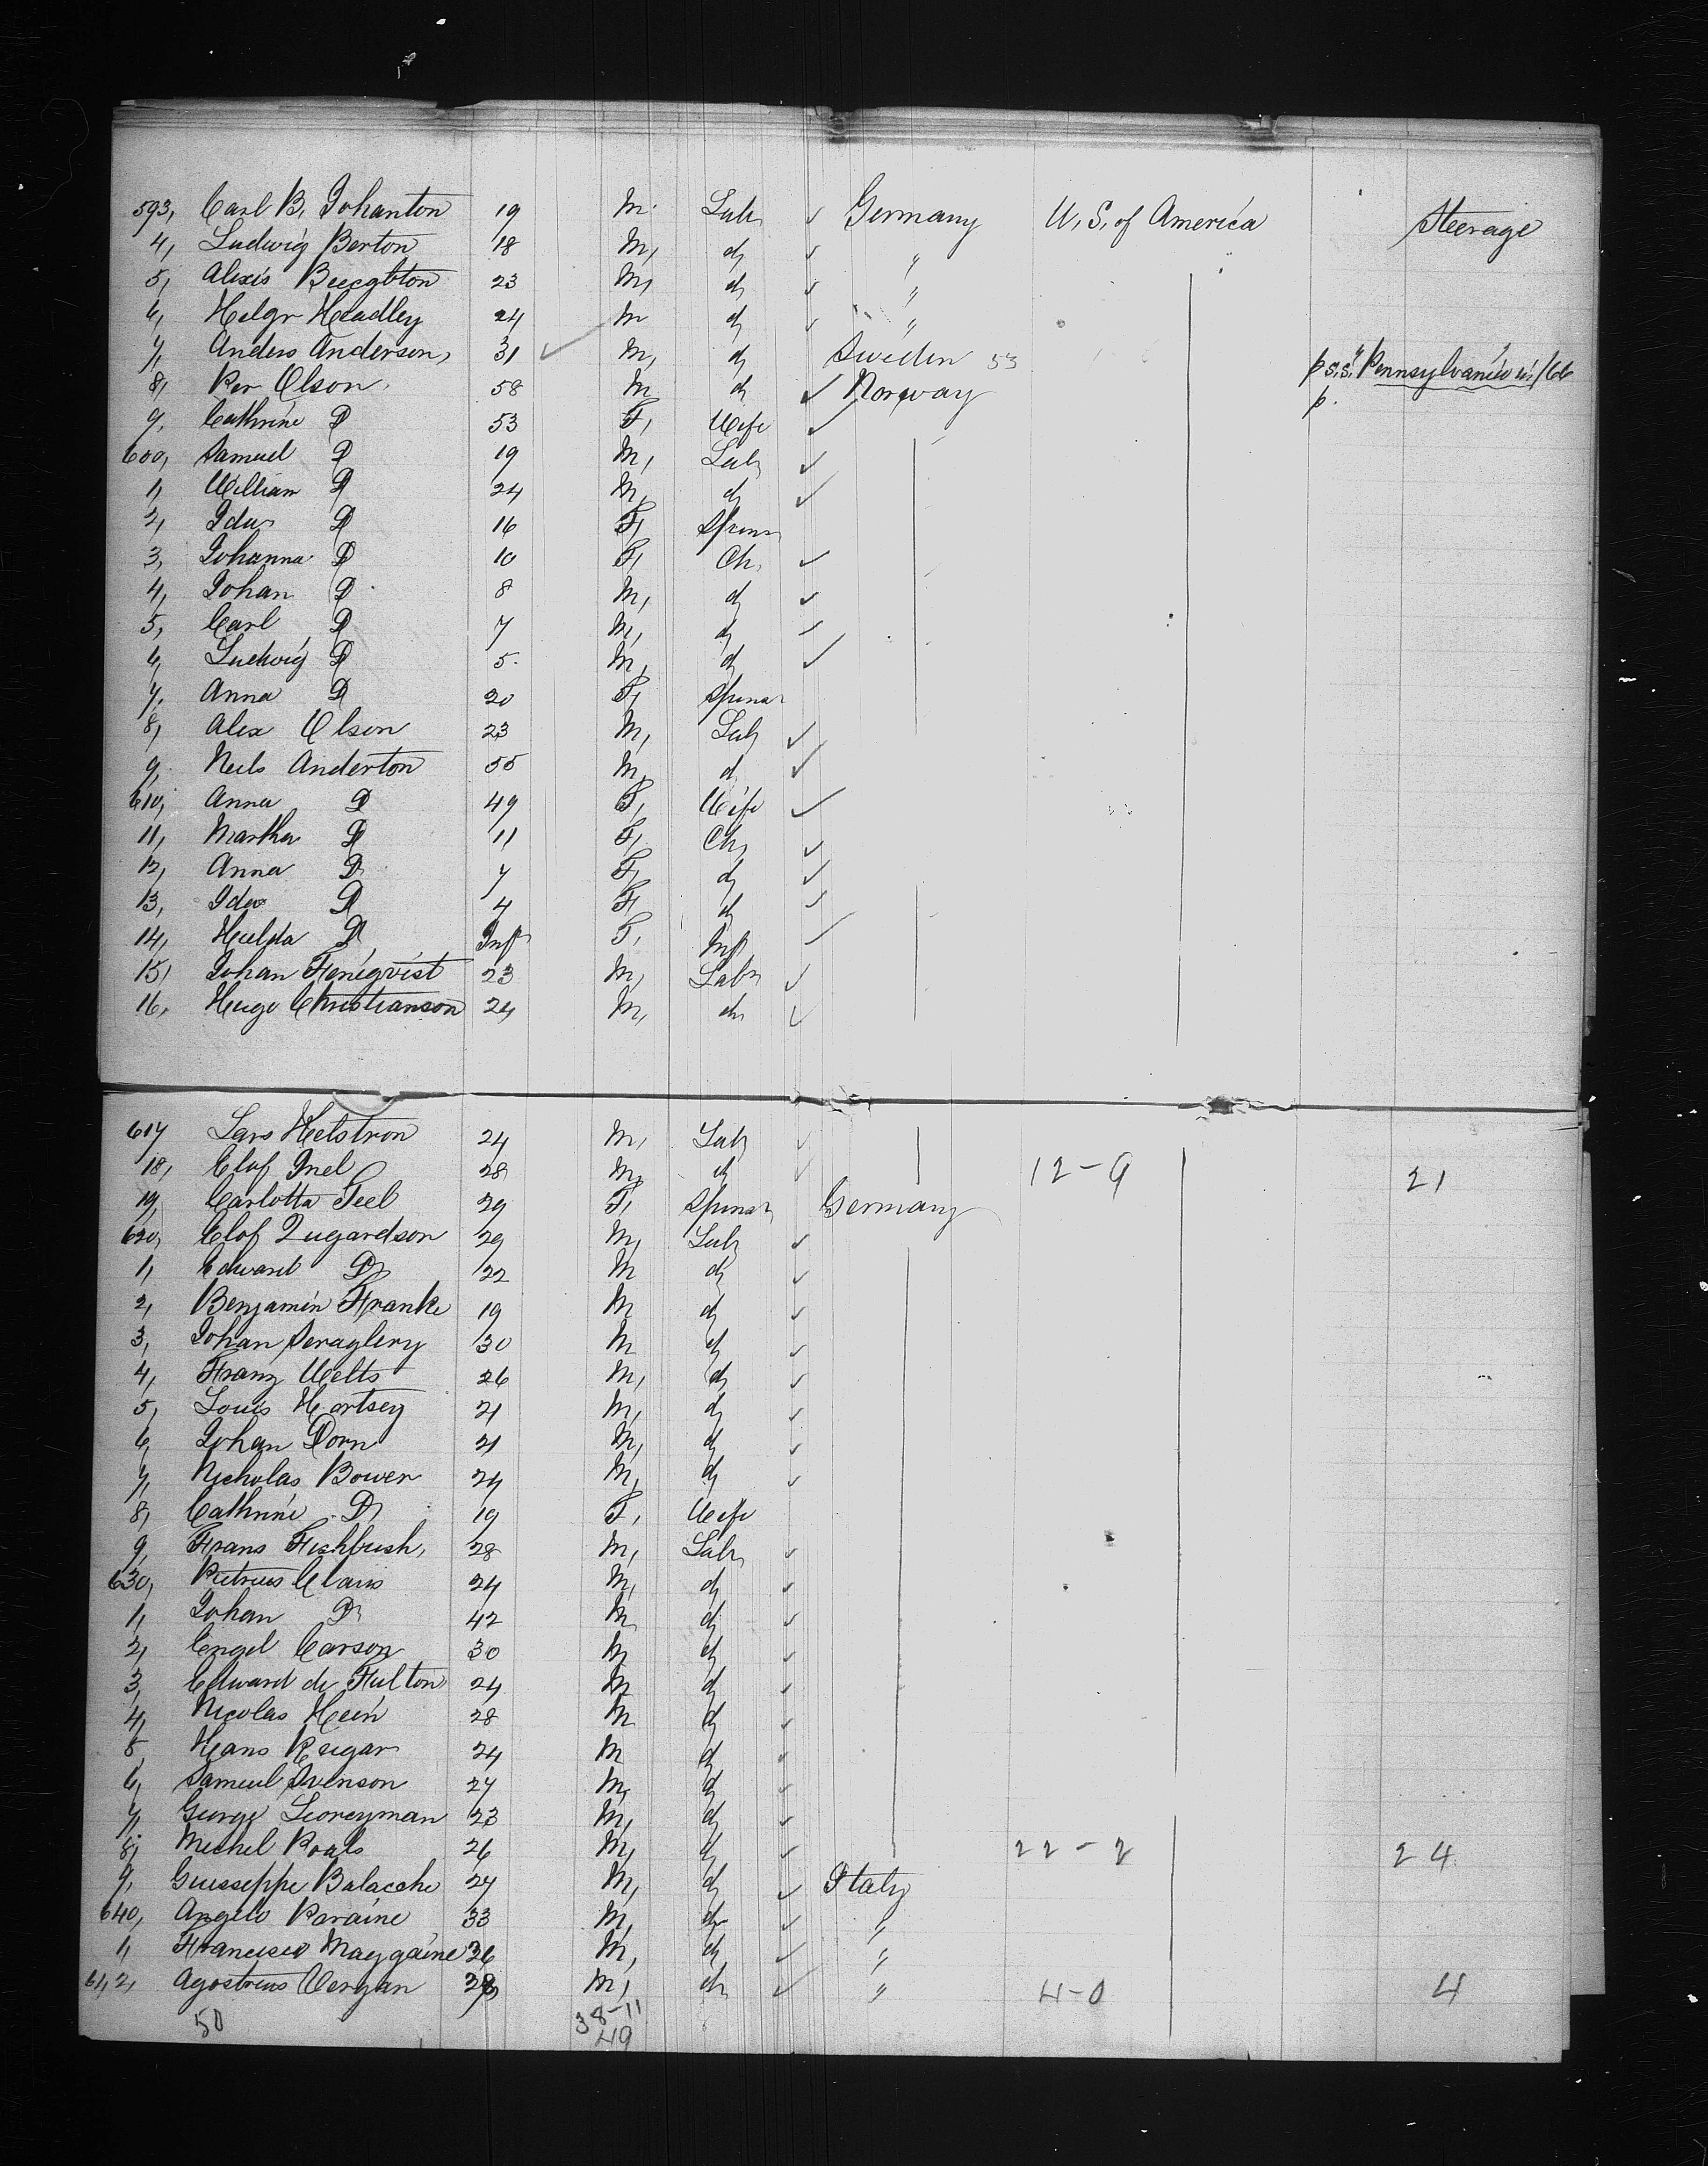 593, Carl B. Johanton 19 M. Labr ✓ Germany U.S. of America Steerage
4, Ludwig Berton 18 M, do ✓ "
5, Alexis 23 M, do ✓ "
6, Helgr Headley 24 M do ✓ "
7, Anders Anderson, 31 ✓ M, do Sweden 53 p S.S. "Pennsylvania"
8, Per Olson 58 M do ✓ Norway p.
9, Cathrine Do 53 F, Wife ✓
600, Samuel Do 19 M, Labr ✓
1, William Do 24 M, do ✓
2, Ida Do 16 F, Spinsr
3, Johanna Do 10 F, Ch. ✓
4, Johan Do 8 M, do ✓
5, Carl Do 7 M, do ✓
6, Ludwig Do 5 M, do ✓
7, Anna Do 20 F, Spinsr
8, Alex Olson 23 M, Labr ✓
9, Neils Anderton 55 M, do ✓
610, Anna Do 49 F, Wife ✓
11, Martha Do 11 F, Ch, ✓
12, Anna Do 7 F, do ✓
13, Ida Do 4 F, do ✓
14, Hulda Do Inft F, Inft ✓
15, Johan Feneqvist 23 M, Labr ✓
16, Hugo Christianson 24 M, do ✓
617 Lars Helstron 24 M, Labr ✓
18, Olof Inel 28 M, do ✓ 12-9 21
19, Carlotta Teel 29 F, Spinsr Germany
620, Olof Lugardson 29 M, Labr ✓
1, Edward Do 22 M do ✓
2, Benjamin Franke 19 M do ✓
3, Johan Seraglery 30 M do ✓
4, Franz Welts 26 M, do ✓
5, Louis Hartsey 21 M, do ✓
6, Johan Dorn 21 M, do ✓
7, Nicholas Bower 24 M, do ✓
8, Cathrine Do 19 F, Wife
9, Frans Fishbush, 28 M, Labr ✓
630, Petrus Claus 24 M, do ✓
1, Johan Do 42 M do ✓
2, Engel Carson 30 M do ✓
3, Edward de Fulton 24 M do ✓
4, Nicolas Hein 28 M do ✓
5, Hans Reigar 24 M do ✓
6, Samuel Svenson 27 M, do ✓
7, George Loreyman 23 M, do ✓
8, Michel Poals 26 M, do ✓ 22-2 24
9, Guisseppe Balacche 27 M, do ✓ Italy
640, Angelo Paraine 33 M, do ✓ "
1, Francisco Maygaine 36 M, do ✓ "
642, Agostinos Vergan 28 M, do ✓ " 4-0 4
50 38-11
49